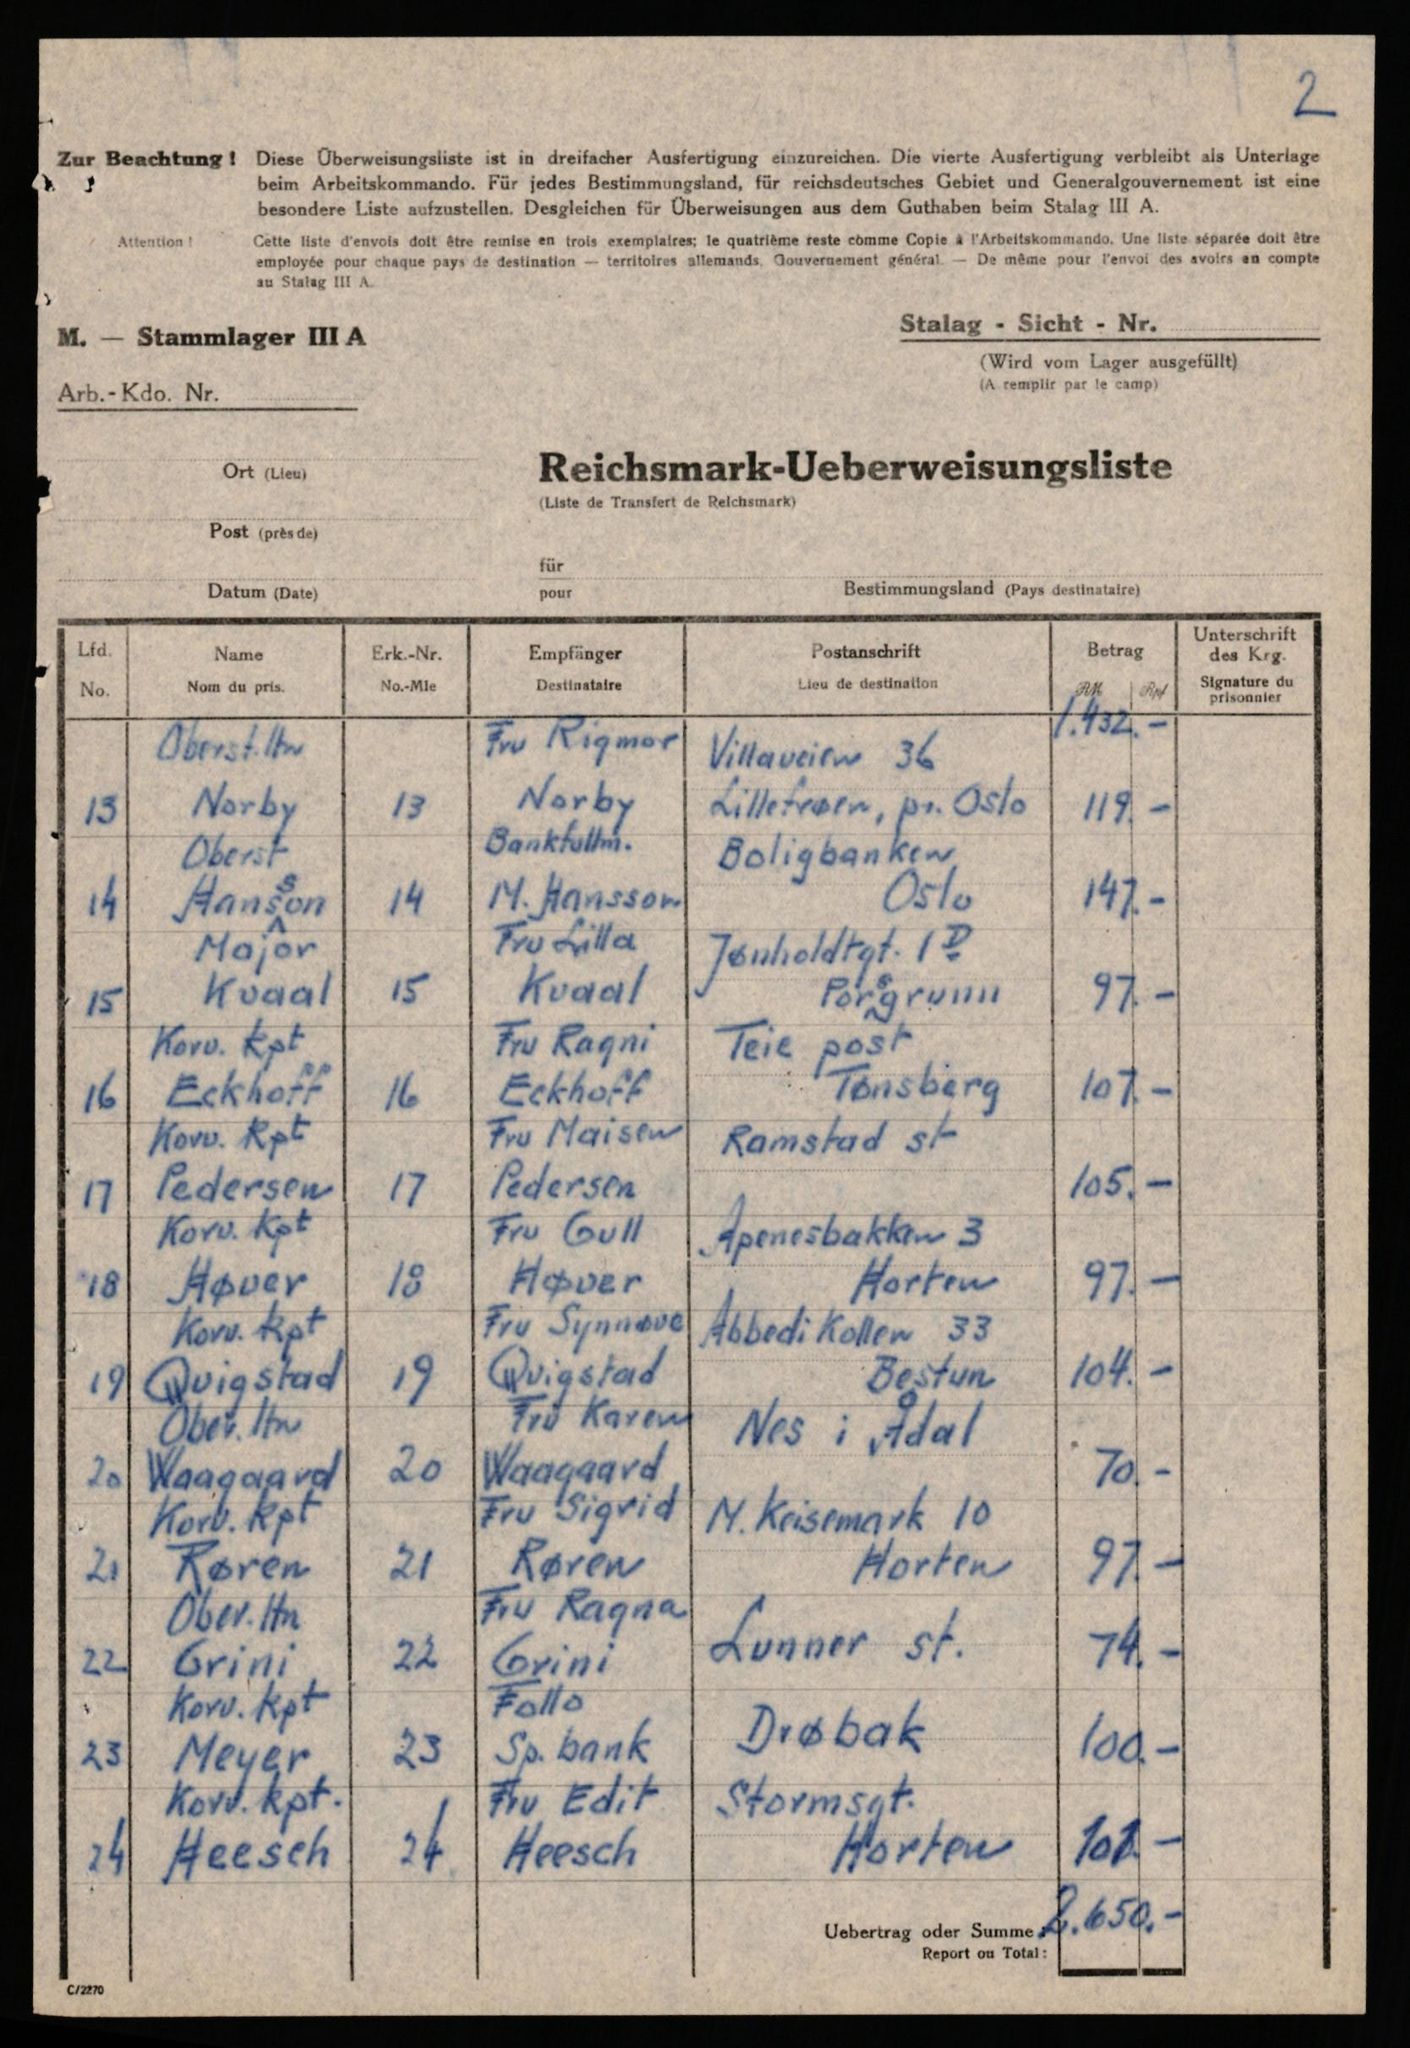 2
Zur Beachtung ! Diese Überweisungsliste ist in dreifacher Ausfertigung einzureichen. Die vierte Ausfertigung verbleibt als Unterlage
beim Arbeitskommando. Für jedes Bestimmungsland, für reichsdeutsches Gebiet und Generalgouvernement ist eine
besondere Liste aufzustellen. Desgleichen für Überweisungen aus dem Guthaben beim Stalag III A.
Attention ! Cette liste d'envois doit être remise en trois exemplaires; le quatrième reste comme Copie à l'Arbeitskommando. Une liste séparée doit être
employée pour chaque pays de destination — territoires allemands. Gouvernement général. — De même pour l'envoi des avoirs en compte
au Stalag III A.
M. — Stammlager III A
Stalag - Sicht - Nr.
(Wird vom Lager ausgefüllt)
(A remplir par le camp)
Arb.-Kdo. Nr.
Ort (Lieu)
Reichsmark-Ueberweisungsliste
(Liste de Transfert de Reichsmark)
Post (près de)
für
pour
Datum (Date)
Bestimmungsland (Pays destinataire)
Lfd. Name Erk.-Nr. Empfänger Postanschrift Betrag Unterschrift des Krg.
No. Nom du pris. No.-Mle Destinataire Lieu de destination RM Rpf Signature du prisonnier
1.432.-
Oberst.ltn Fru Rigmor Villaveien 36
13 Norby 13 Norby Lillefrøen, pr. Oslo 119.-
Oberst Bankfullm. Boligbanken
14 Hansson 14 M. Hansson Oslo 147.-
Major Fru Lilla Jønholdtgt. 1 D
15 Kvaal 15 Kvaal Porsgrunn 97.-
Korv. kpt Fru Ragni Teie post
16 Eckhoff 16 Eckhoff Tønsberg 107.-
Korv. kpt Fru Maisen Ramstad st
17 Pedersen 17 Pedersen 105.-
Korv. kpt Fru Gull Apenesbakken 3
18 Høver 18 Høver Horten 97.-
Korv. kpt Fru Synnøve Abbedikollen 33
19 Qvigstad 19 Qvigstad Bestun 104.-
Ober.ltn Fru Karen Nes i Ådal
20 Waagaard 20 Waagaard 70.-
Korv. kpt Fru Sigrid M. Keisemark 10
21 Røren 21 Røren Horten 97.-
Ober.ltn Fru Ragna Lunner st.
22 Grini 22 Grini 74.-
Korv. kpt Follo Drøbak
23 Meyer 23 Sp. bank 100.-
Korv. kpt. Fru Edit Stormsgt.
24 Heesch 24 Heesch Horten 101.-
Uebertrag oder Summe : 2.650.-
Report ou Total :
C/2270